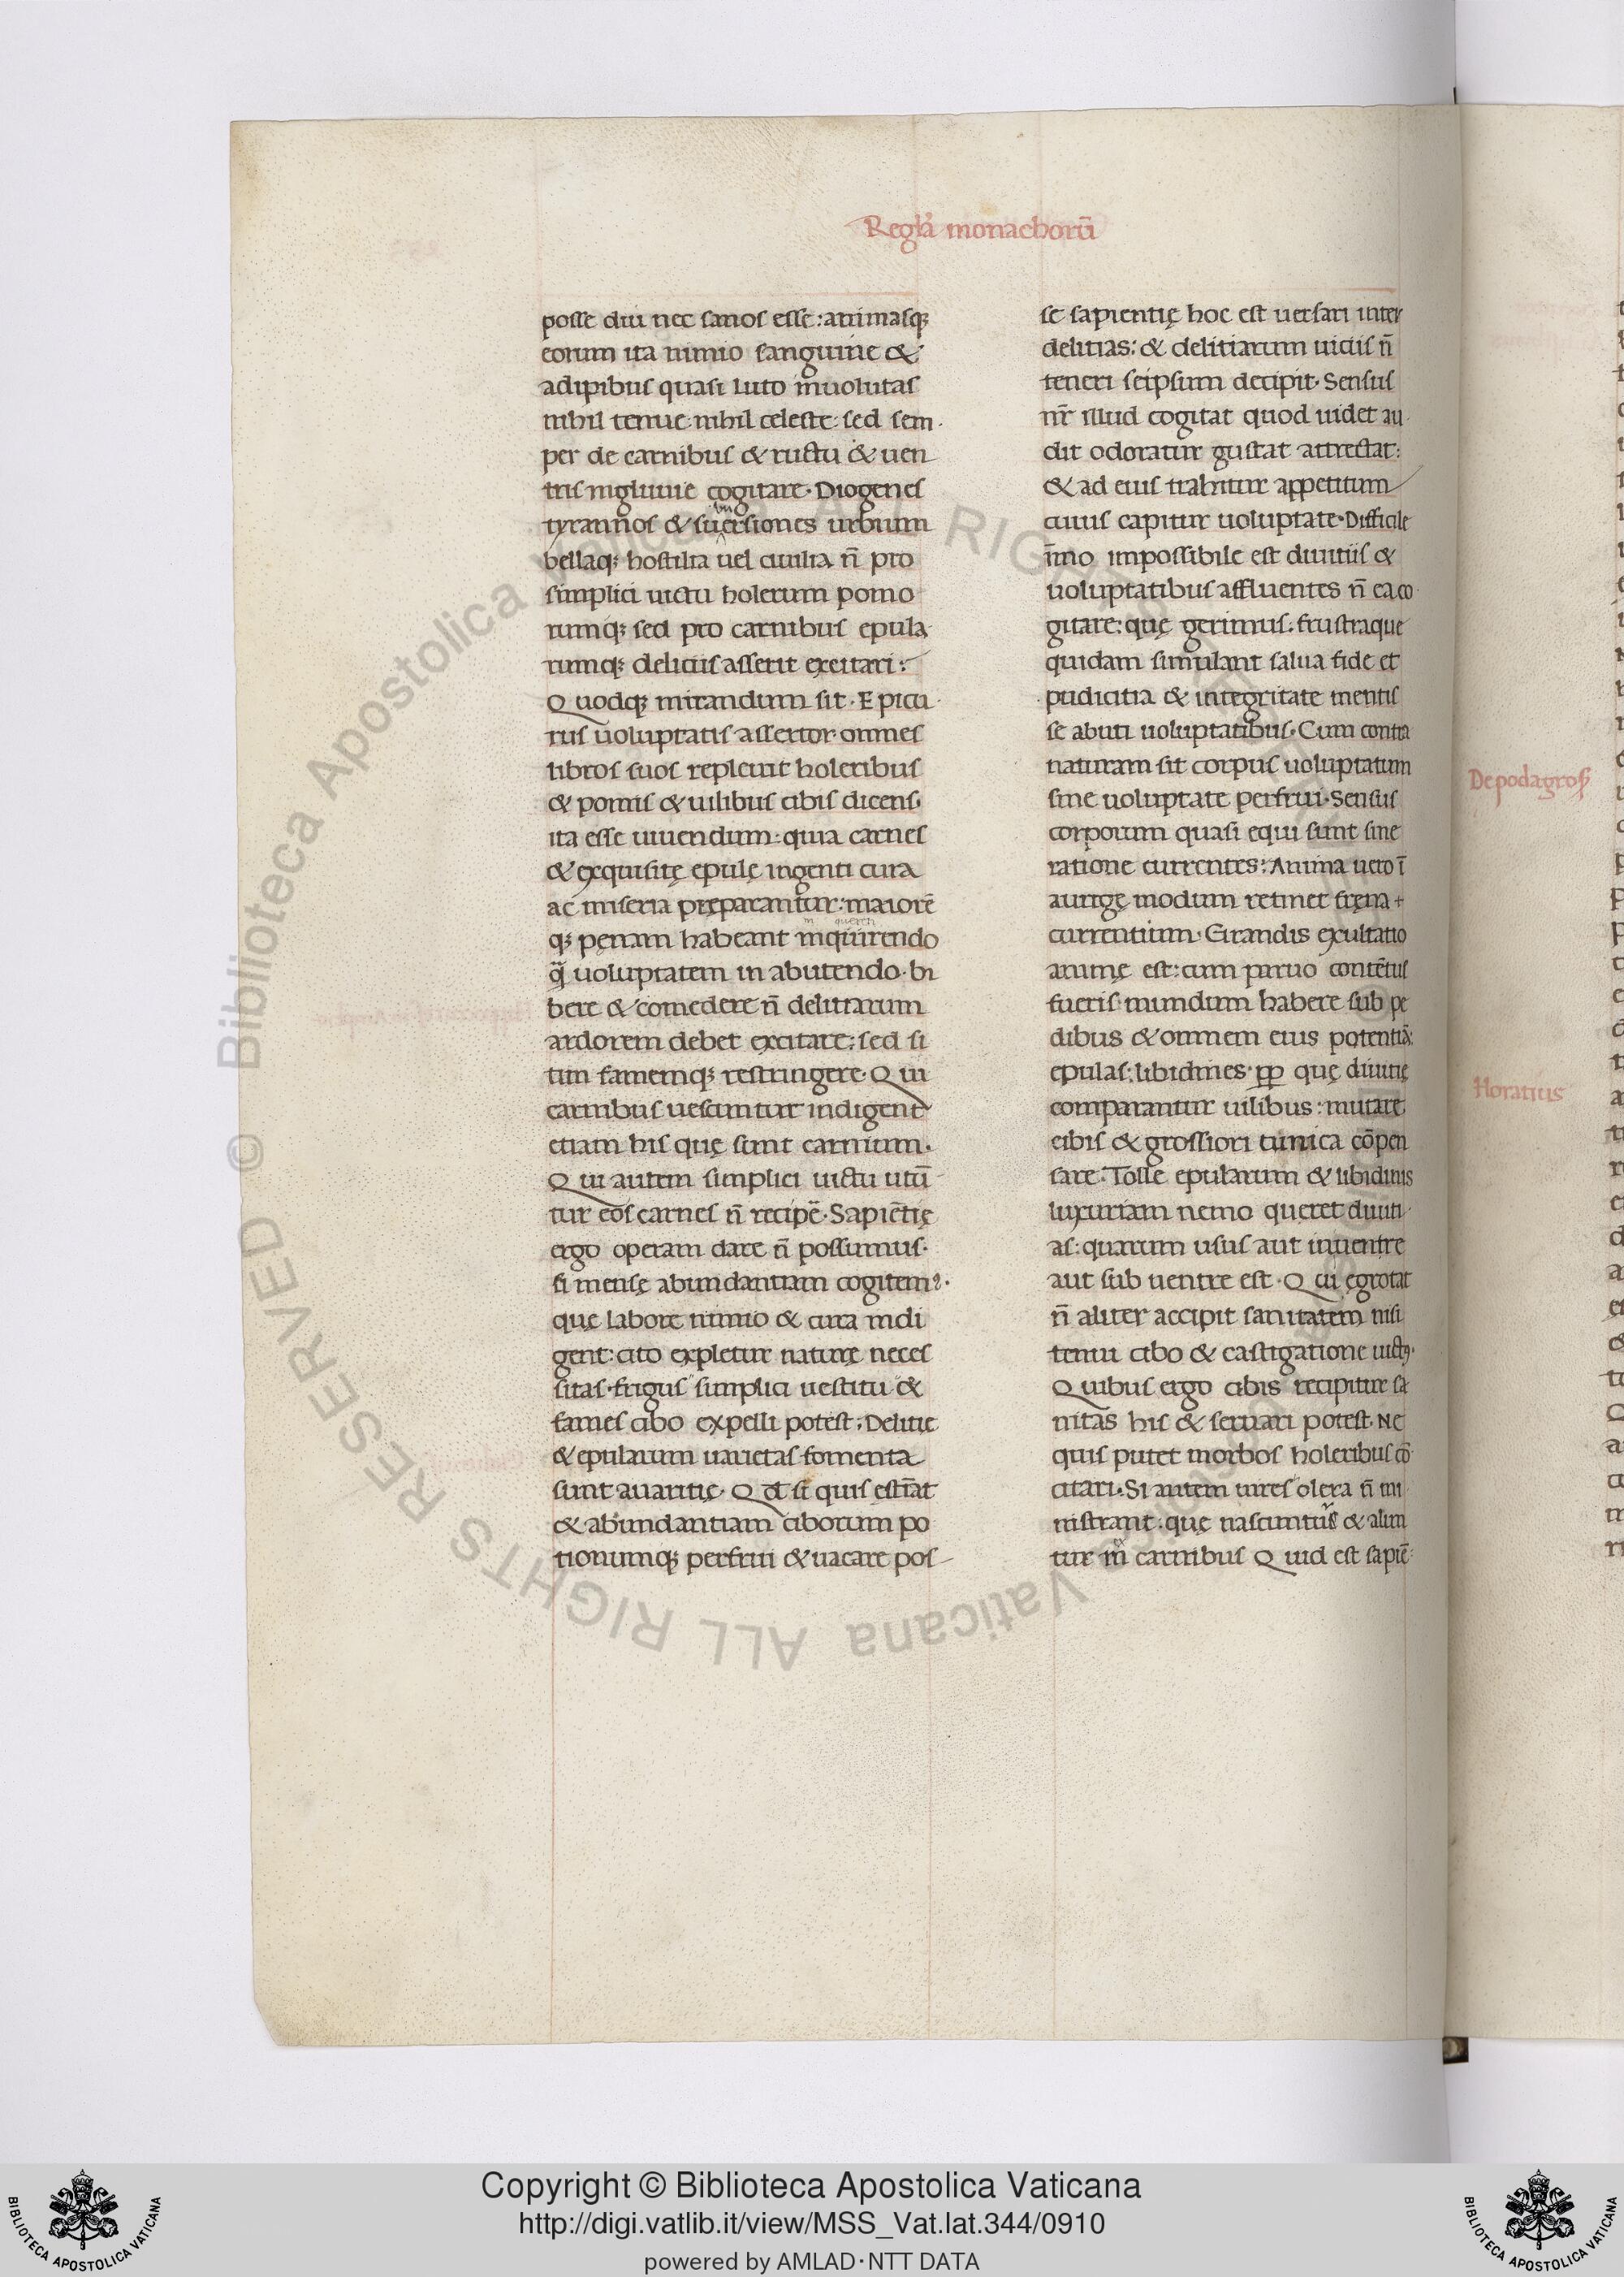 Regla monachorū
posse diu nec sanos esse: animasq;
eorum ita nimio sanguine &
adipibus quasi luto inuolutas
nihil tenue: nihil celeste: sed sem
per de carnibus & ructu & uen
tris ingluuie cogitare. Diogenes
tyrannos & suersiones urbium
bellaq; hostilia uel ciuilia n̄ pro
simplici uictu holerum pomo
rumq; sed pro carnibus epula
rumq; deliciis asserit excitari:
Quodq; mirandum sit. Epicu
rus uoluptatis assertor omnes
libros suos repleuit holeribus
& pomis & uilibus cibis dicens.
ita esse uiuendum: quia carnes
& exquisitę epulę ingenti cura
ac miseria pręparantur: maiorē
q; penam habeant inquirendo
q̄ uoluptatem in abutendo. bi
bere & comedere n̄ delitiarum
ardorem debet excitare: sed si
tim famemq; restringere. Qui
carnibus uescuntur indigent
etiam his quę sunt carnium.
Qui autem simplici uictu utū
tur eos carnes n̄ recipē. Sapiētię
ergo operam dare n̄ possumus.
si mensę abundantiam cogitem9.
quę labore nimio & cura indi
gent: cito expletur naturę neces
sitas. frigus simplici uestitu &
fames cibo expelli potest: Delitię
& epularum uarietas fomenta
sunt auaritię. Qd si quis estīat
& abundantiam ciborum po
tionumq; perfrui & uacare pos
se sapientię hoc est uersari inter
delitias: & delitiarum uiciis n̄
teneri seipsum decipit. Sensus
nr̄ illud cogitat quod uidet au
dit odoratur gustat attrectat:
& ad eius trahitur appetitum
cuius capitur uoluptate. Difficile
īmo impossibile est diuitiis &
uoluptatibus affluentes n̄ ea co
gitare: quę gerimus: frustraque
quidam simulant salua fide et
pudicitia & integritate mentis
se abuti uoluptatibus. Cum contra
naturam sit corpus uoluptatum
sine uoluptate perfrui. Sensus
corporum quasi equi sunt sine
ratione currentes: Anima uero ī
aurigę modum retinet frena
currentium. Grandis exultatio
animę est: cum paruo contētus
fueris. mundum habere sub pe
dibus & omnem eius potentiā:
epulas: libidines. pp quę diuitię
comparantur uilibus: mutare
cibis & grossiori tunica cōpen
sare. Tolle epularum & libidinis
luxuriam nemo queret diuiti
as: quarum usus aut in uentre
aut sub uentre est. Qui egrotat
n̄ aliter accipit sanitatem nisi
tenui cibo & castigatione uict9.
Quibus ergo cibis recipitur sa
nitas his & seruari potest. Ne
quis putet morbos holeribus cō
citari. Si autem uires olera n̄ mi
nistrant: quę nascuntur & alun
tur in carnibus Quid est sapiē
De podagros
Horatius
© Biblioteca Apostolica Vaticana ALL RIGHTS RESERVED
Copyright © Biblioteca Apostolica Vaticana
http://digi.vatlib.it/view/MSS_Vat.lat.344/0910
powered by AMLAD·NTT DATA
BIBLIOTECA APOSTOLICA VATICANA
BIBLIOTECA APOSTOLICA VATICANA